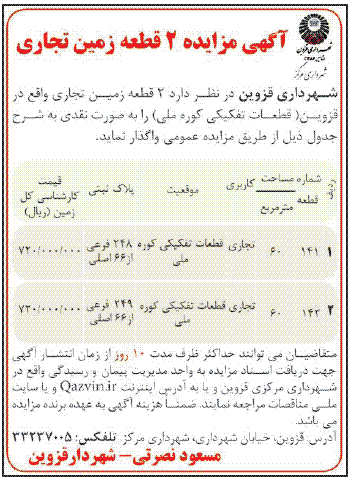 آگهی مزایده ۲ قطعه زمین تجاری
شهرداری قزوین
شهرداری مرکز
شهرداری قزوین در نظر دارد ۲ قطعه زمین تجاری واقع در
قزوین( قطعات تفکیکی کوره ملی) را به صورت نقدی به شرح
جدول ذیل از طریق مزایده عمومی واگذار نماید.
ردیف شماره قطعه مساحت مترمربع کاربری موقعیت پلاک ثبتی قیمت کارشناسی کل زمین (ریال)
۱ ۱۴۱ ۶۰ تجاری قطعات تفکیکی کوره ملی ۲۴۸ فرعی از۶۶ اصلی ۷۲۰/۰۰۰/۰۰۰
۲ ۱۴۲ ۶۰ تجاری قطعات تفکیکی کوره ملی ۲۴۹ فرعی از۶۶ اصلی ۷۲۰/۰۰۰/۰۰۰
متقاضیان می توانند حداکثر ظرف مدت ۱۰ روز از زمان انتشار آگهی
جهت دریافت اسناد مزایده به واحد مدیریت پیمان و رسیدگی واقع در
شهرداری مرکزی قزوین و یا به آدرس اینترنت Qazvin.ir و یا سایت
ملی مناقصات مراجعه نمایند. ضمناً هزینه آگهی به عهده برنده مزایده
می باشد.
آدرس: قزوین، خیابان شهرداری، شهرداری مرکز. تلفکس: ۳۳۲۳۷۰۰۵
مسعود نصرتی– شهردارقزوین